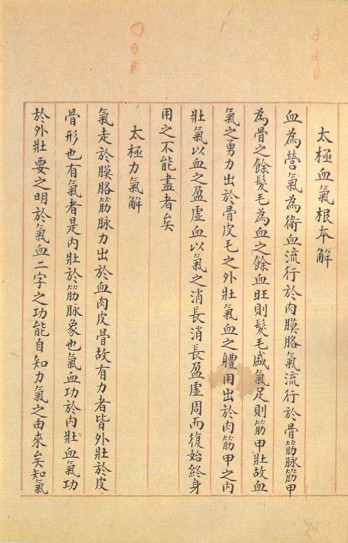 太極血氣根本解
血為營氣為衛血流行於肉膜胳氣流行於骨筋脉筋甲
為骨之餘髮毛為血之餘血旺則髮毛盛氣足則筋甲壯故血
氣之勇力出於骨皮毛之外壯氣血之體用出於肉筋甲之內
壯氣以血之盈虛血以氣之消長消長盈虛周而復始終身
用之不能盡者矣
太極力氣解
氣走於膜胳筋脉力出於血肉皮骨故有力者皆外壯於皮
骨形也有氣者是內壯於筋脉象也氣血功於內壯血氣功
於外壯要之明於氣血二字之功能自知力氣之由來矣知氣